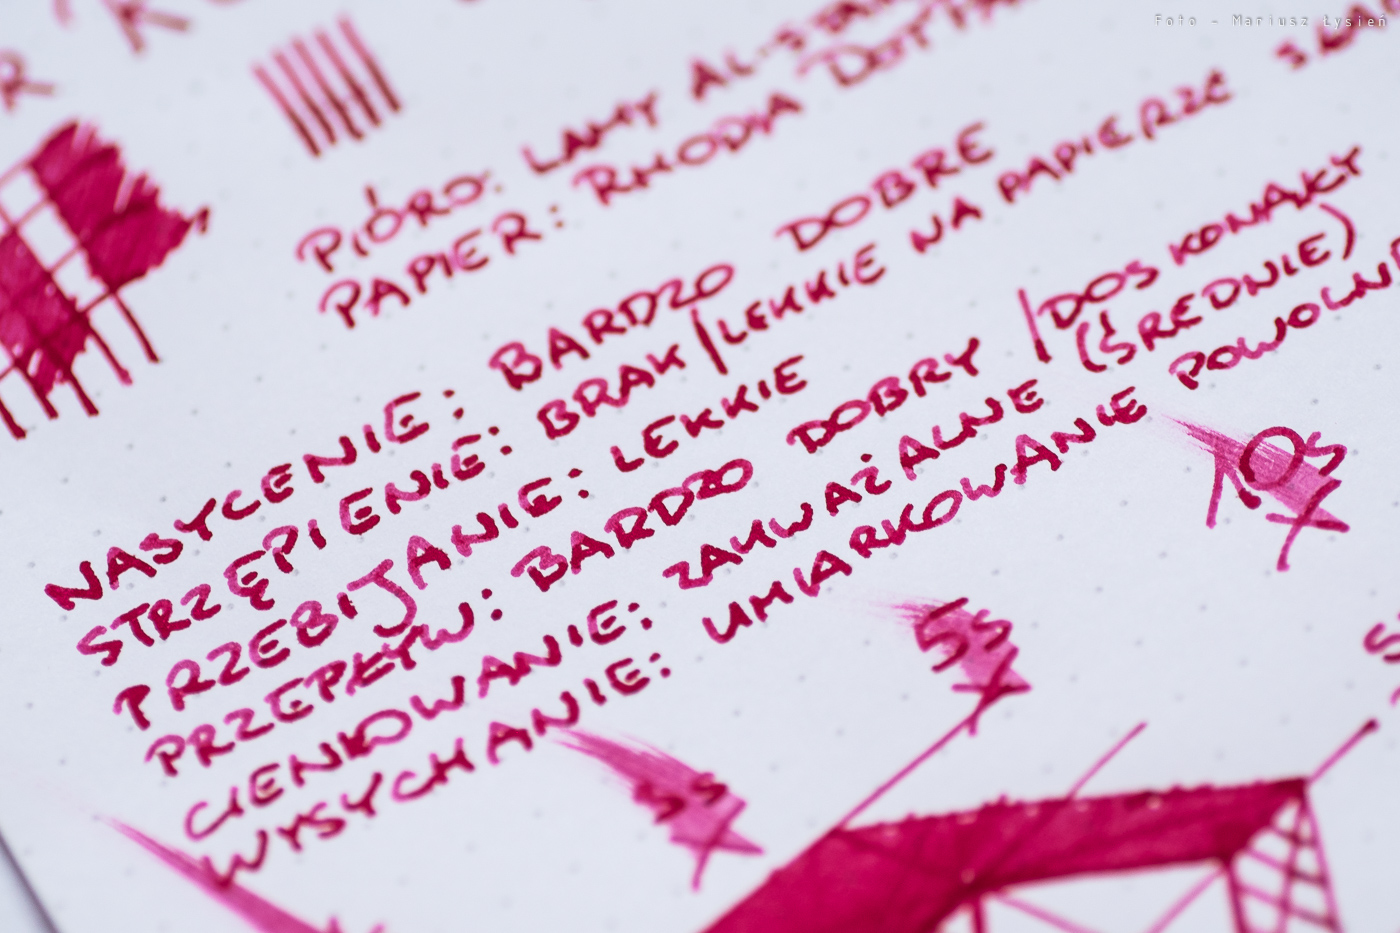 Foto - Mariusz Łysień
PIÓRO: LAMY AL-STAR
PAPIER: RHODIA DOT PAD
NASYCENIE: BARDZO DOBRE
STRZĘPIENIE: BRAK/LEKKIE NA PAPIERZE
PRZEBIJANIE: LEKKIE
PRZEPŁYW: BARDZO DOBRY /DOSKONAŁY
CIENIOWANIE: ZAUWAŻALNE (ŚREDNIE)
WYSYCHANIE: UMIARKOWANIE
10s
5s